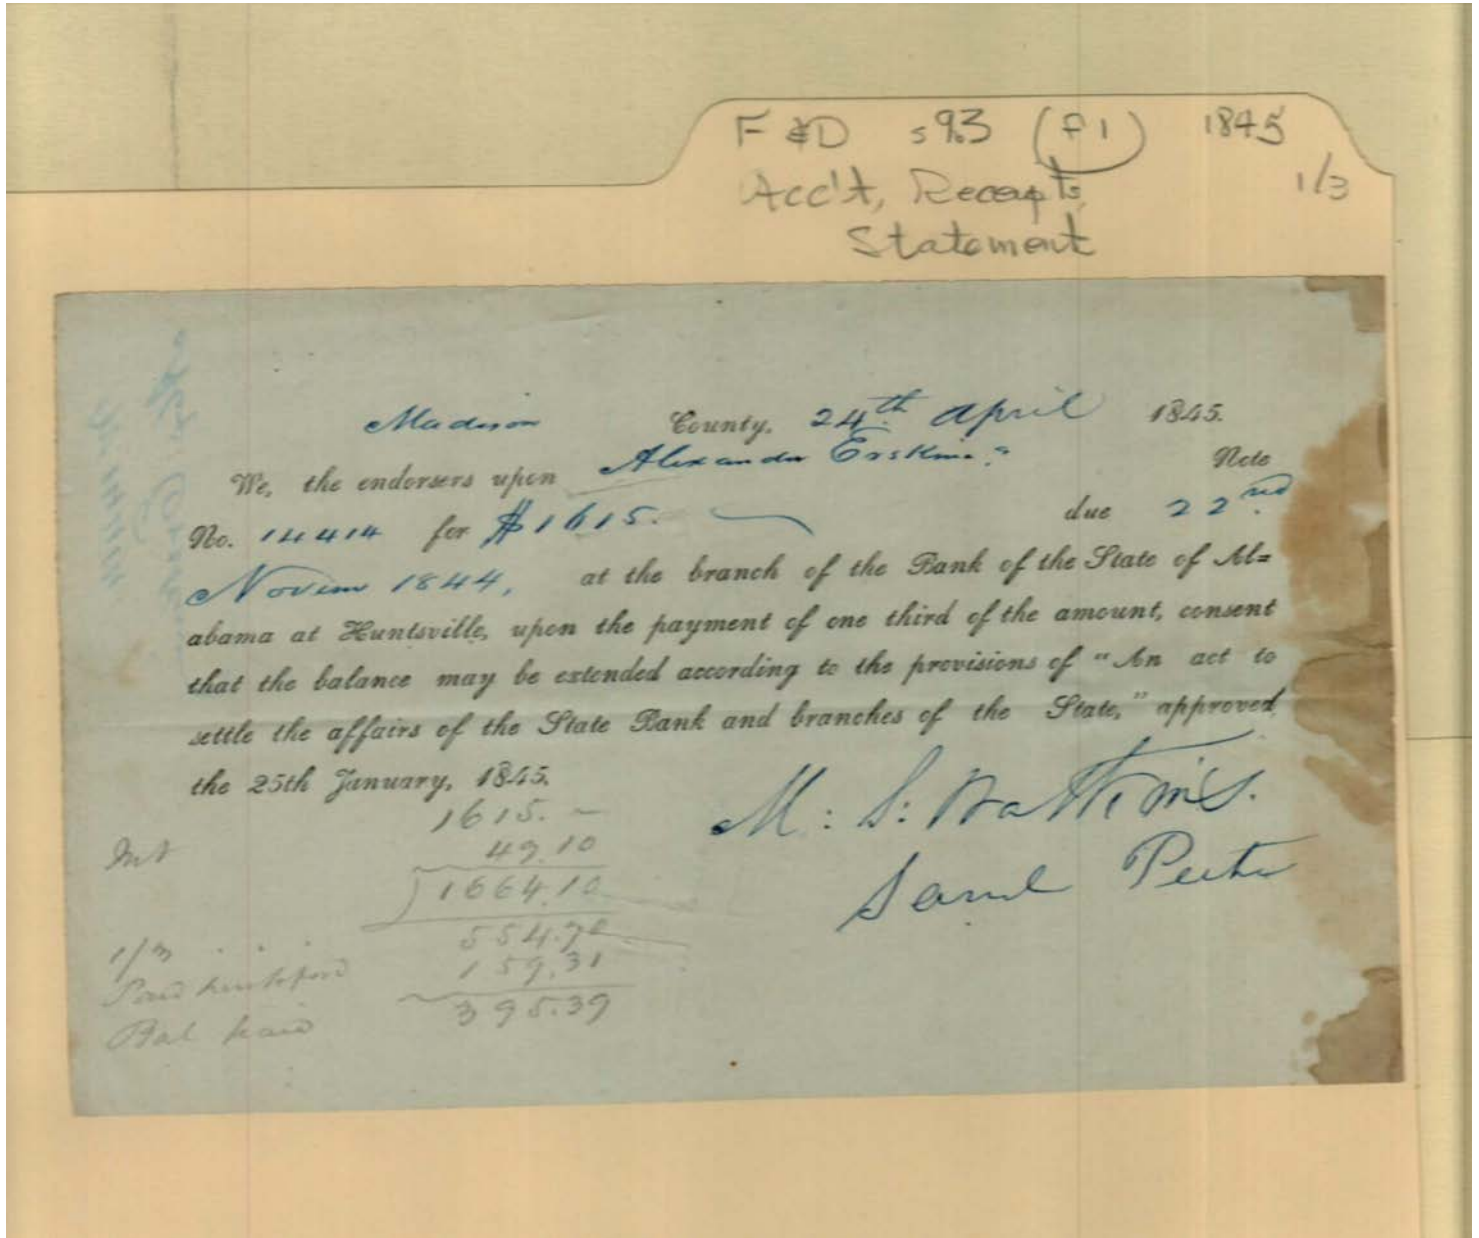 F &D s93 (f1) 1845
Acc't, Receipts, 1/3
Statement
Madison County, 24th. April 1845.
We, the endorsers upon Alexander Erskine's Note
No. 14414 for $1615. due 22nd.
Novem 1844, at the branch of the Bank of the State of Al=
abama at Huntsville, upon the payment of one third of the amount, consent
that the balance may be extended according to the provisions of "An act to
settle the affairs of the State Bank and branches of the State," approved
the 25th January, 1845.
M: S: Watkins.
Saml Peete
1615.-
Int 49.10
1664.10
1/3 . . 554.70
Paid 159.31
Bal paid 395.39